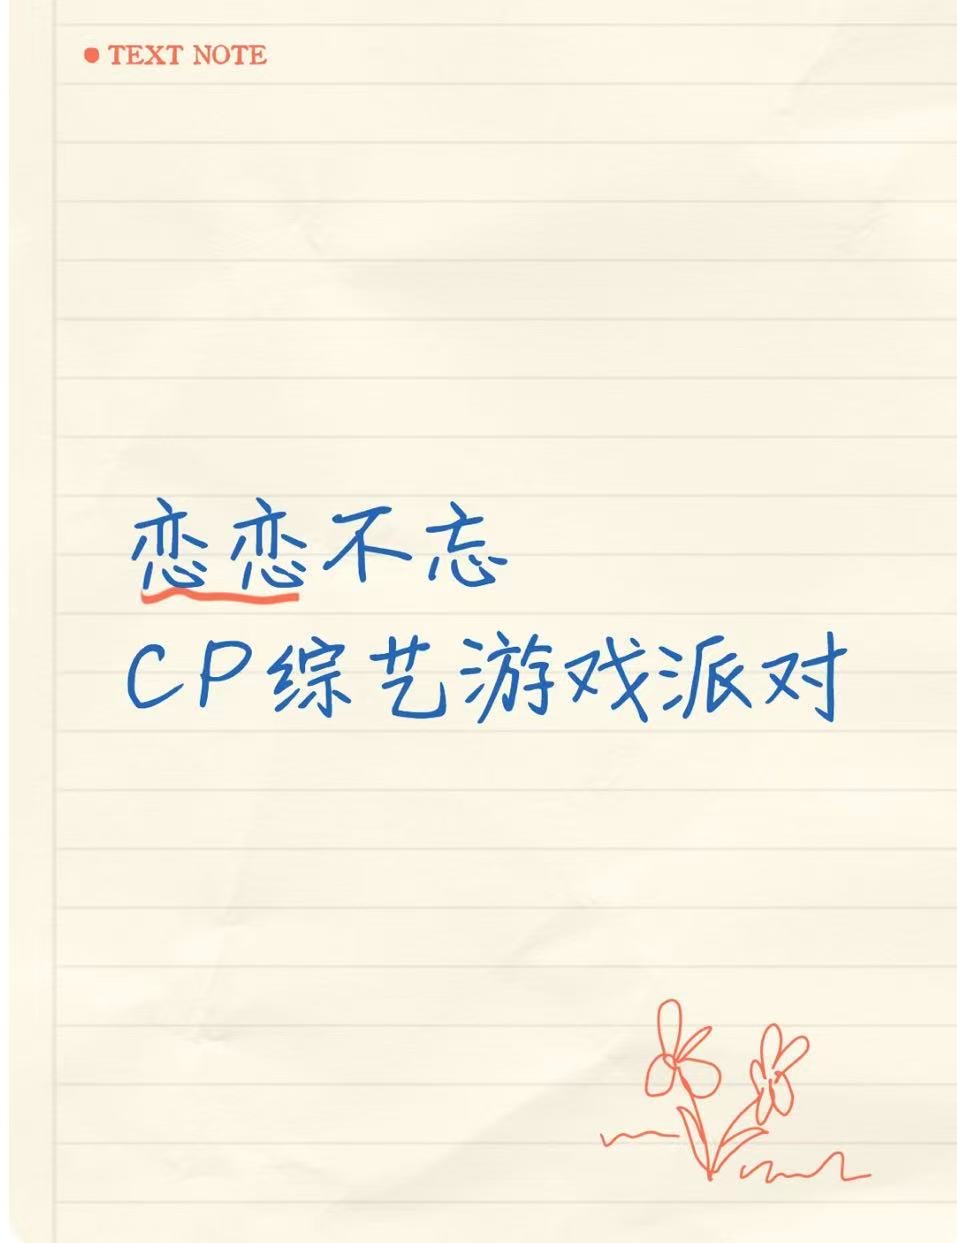 TEXT NOTE
恋恋不忘
CP综艺游戏派对